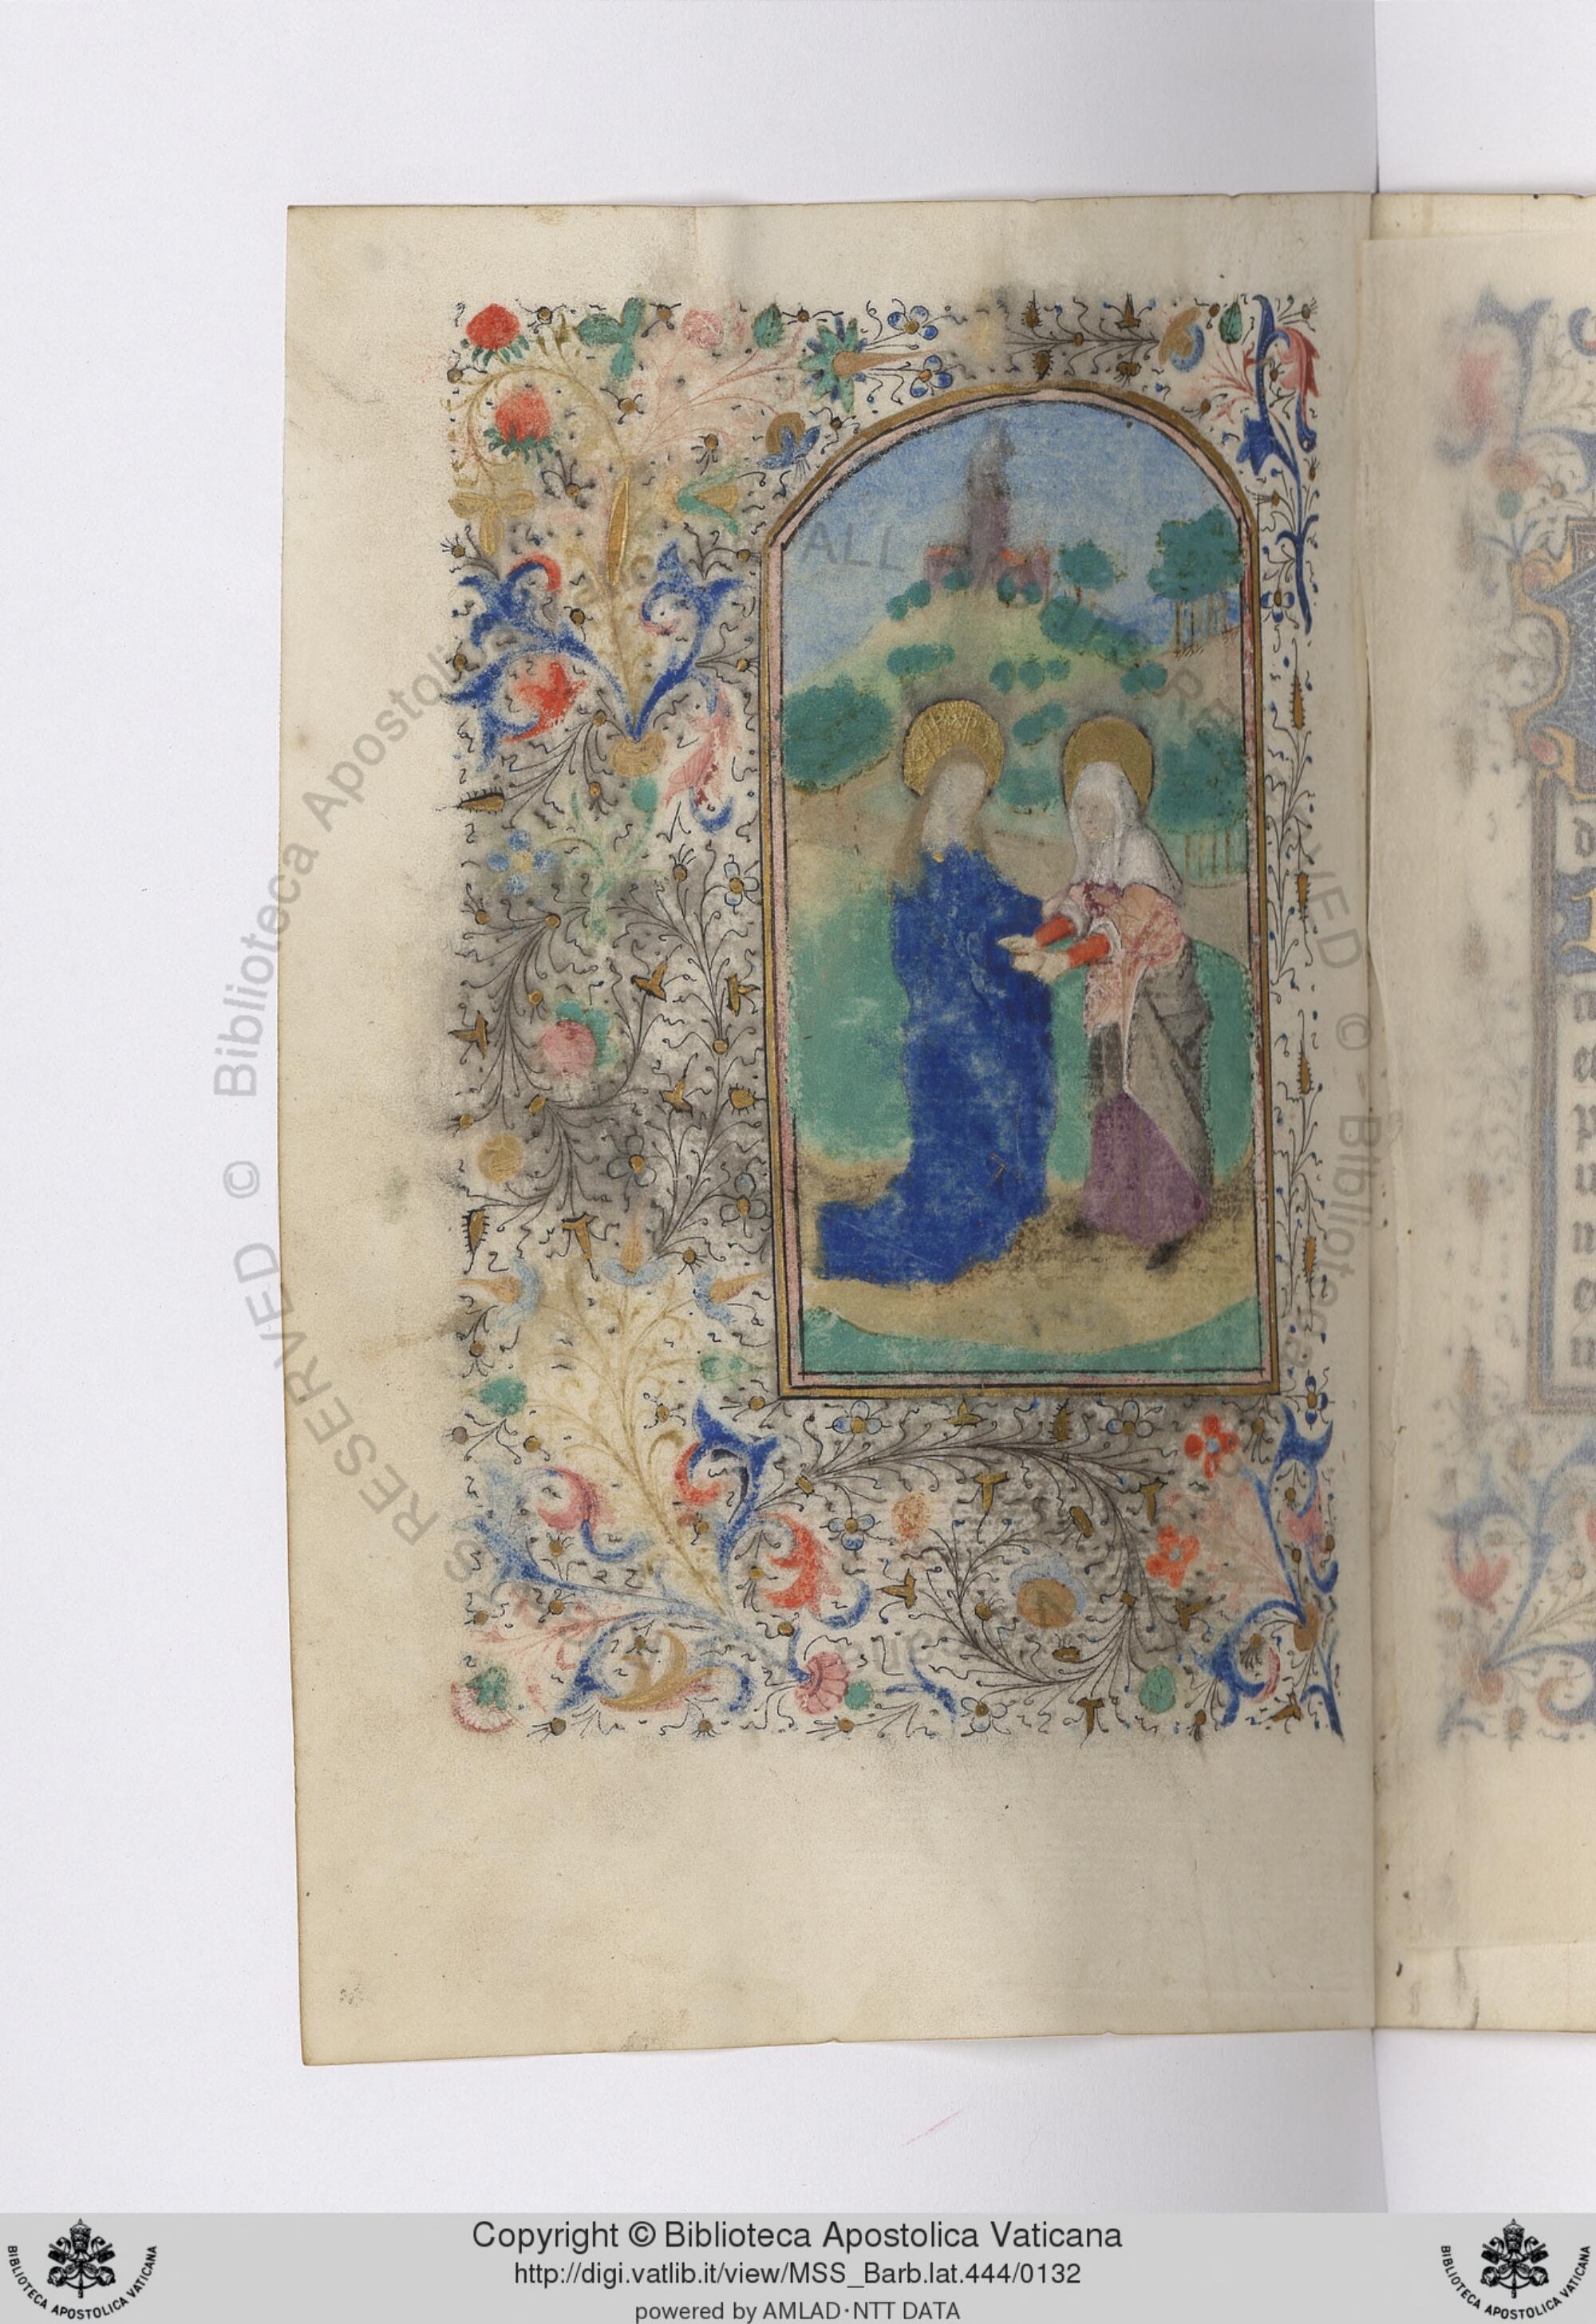 ALL RIGHTS RESERVED © - Biblioteca Apostolica Vaticana
RESERVED © Biblioteca Apostolica
Copyright © Biblioteca Apostolica Vaticana
http://digi.vatlib.it/view/MSS_Barb.lat.444/0132
powered by AMLAD·NTT DATA
BIBLIOTECA APOSTOLICA VATICANA
BIBLIOTECA APOSTOLICA VATICANA